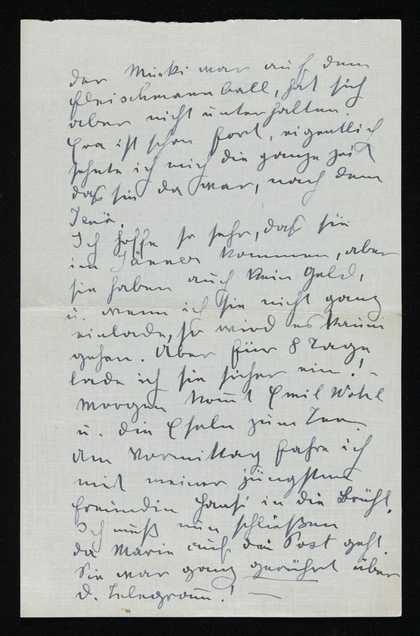 der Mucki war auf dem
Fleischmannball, hat sich
aber nicht unterhalten.
Eva ist schon fort, eigentlich
sehnte ich mich die ganze Zeit
daß sie da war, nach dem
Jenö.
Ich hoffe so sehr, daß sie
im Jänner kommen, aber
sie haben auch kein Geld,
u. wenn ich sie nicht ganz
einlade, so wird es kaum
gehen. Aber für 8 Tage
lade ich sie sicher ein! –
Morgen kommt Emil
u. die zum Tee.
Am Vormittag fahre ich
mit meiner jüngsten
Freundin Hansi in die Brühl.
Ich muß nun schließen
da Marie auf die Post geht.
Sie war ganz gerührt über
d. Telegramm! —